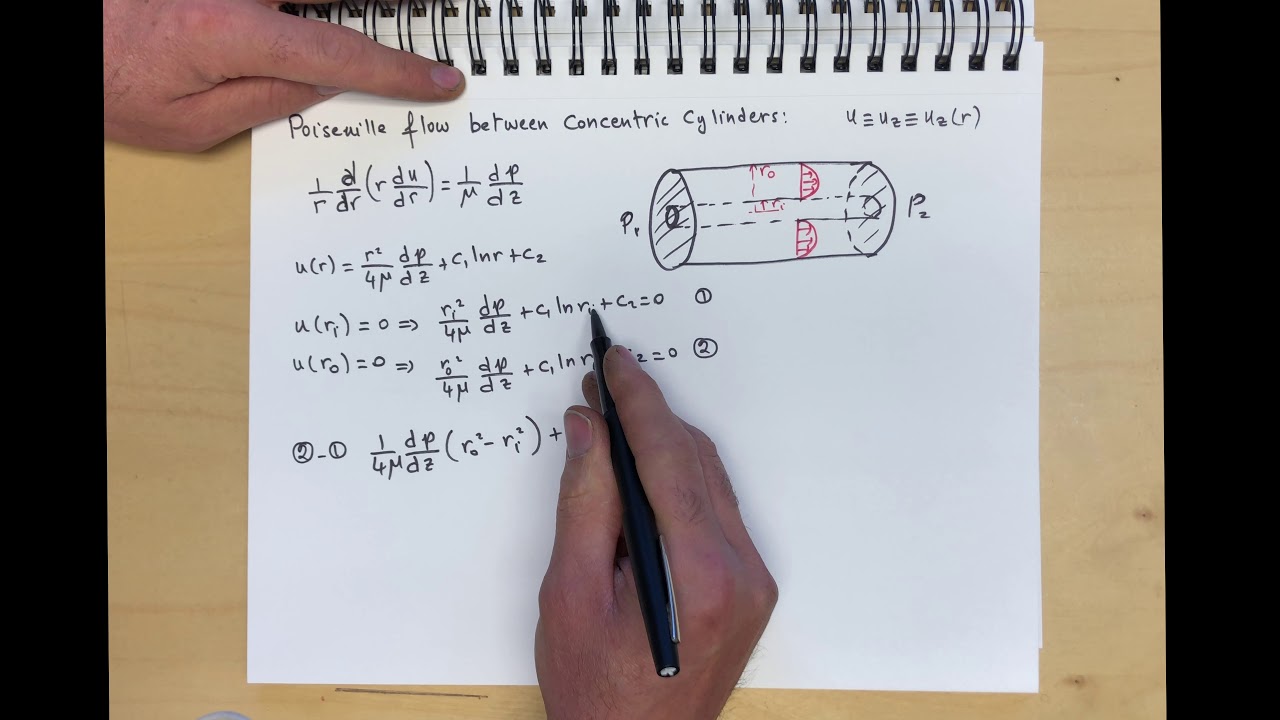 Poiseuille flow between Concentric Cylinders: u ≡ u_z ≡ u_z(r)
1/r d/dr (r du/dr) = 1/μ dp/dz
r_o
r_i
P_1
P_2
u(r) = r²/4μ dp/dz + C_1 ln r + C_2
u(r_i) = 0 ⇒ r_i²/4μ dp/dz + C_1 ln r_i + C_2 = 0 ①
u(r_o) = 0 ⇒ r_o²/4μ dp/dz + C_1 ln r 2 = 0 ②
②-① 1/4μ dp/dz (r_o² - r_i²) +